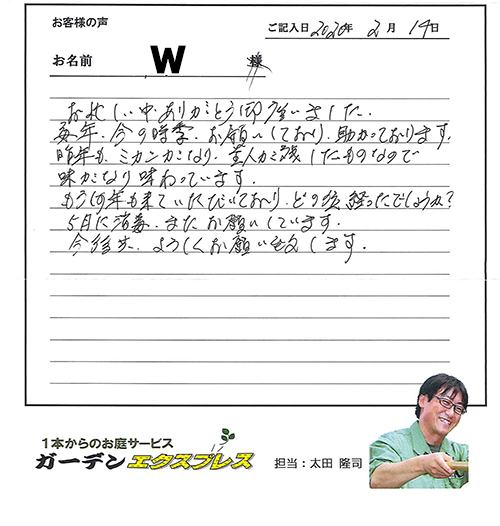 お客様の声
ご記入日 2020年 2月 19日
お名前 W 様
お忙しい中、ありがとう御座いました。
毎年、今の時季、お願いしており、助かっております。
昨年も、ミカンがなり、主人が残したものなので
味がなり味わっています。
もう何年も来ていただいており、どの位経ったでしょうか?
5月に消毒、またお願いしています。
今後共、よろしくお願い致します。
1本からのお庭サービス
ガーデンエクスプレス
担当:太田 隆司